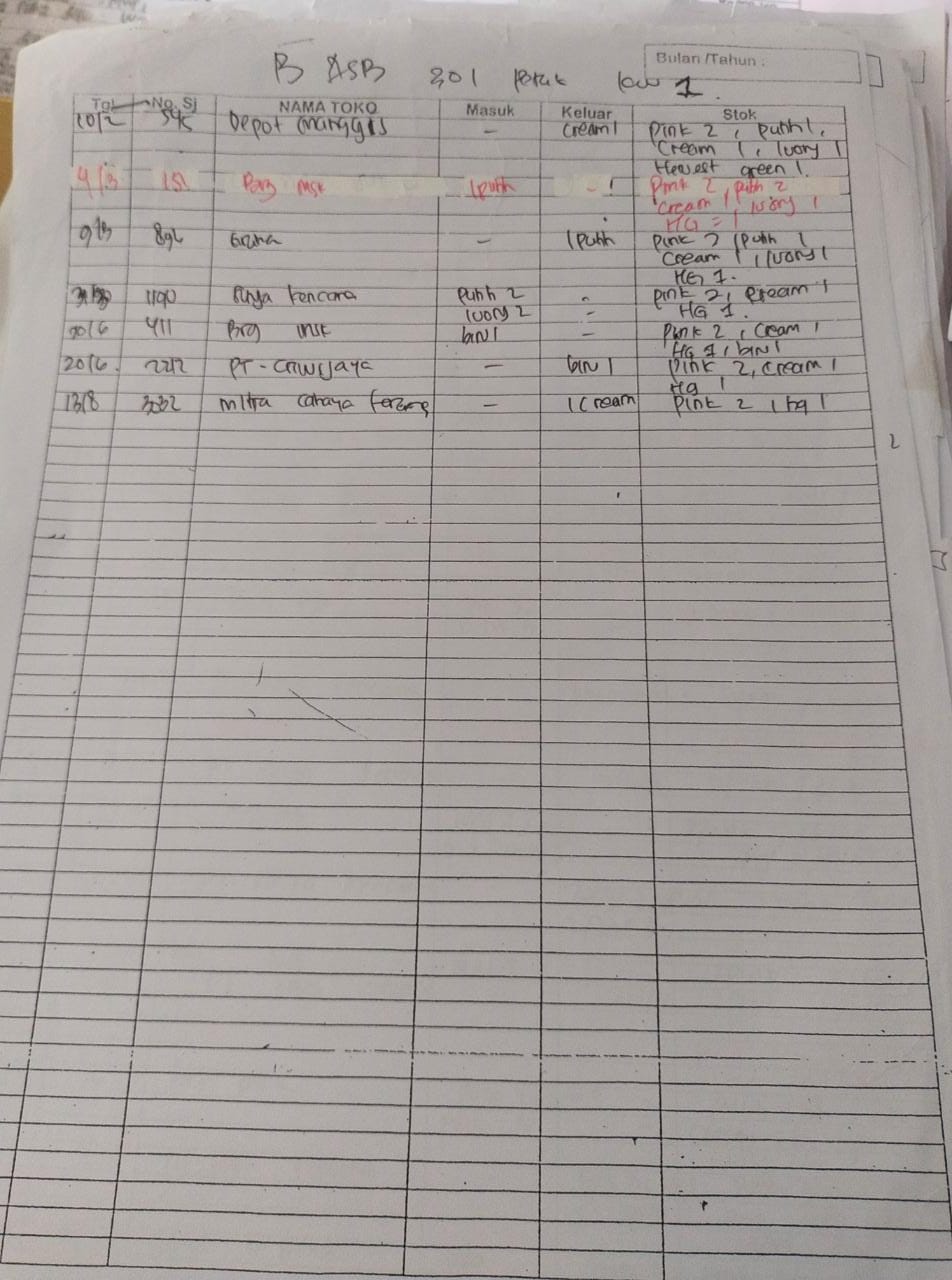 B ASB 301
Bulan /Tahun :
Tgl No. Sj NAMA TOKO Masuk Keluar Stok
10/2 545 Depot manggis - Cream 1 Pink 2, putih 1,
Cream 1, Ivory 1
green 1.
4/3 151 msk 1 putih - Pink 2, putih 2
Cream 1, Ivory 1
HG = 1
9/3 896 - 1 putih Pink 2, putih 1
Cream 1, Ivory 1
HG 1.
1190 kencana putih 2 - pink 2, cream 1
Ivory 2 - HG 1.
411 Brg msk biru 1 - Pink 2, Cream 1
HG 1, biru 1
20/6. 2212 PT - - biru 1 Pink 2, Cream 1
Hg 1
13/8 3332 mitra cahaya - 1 Cream Pink 2, hg 1
2